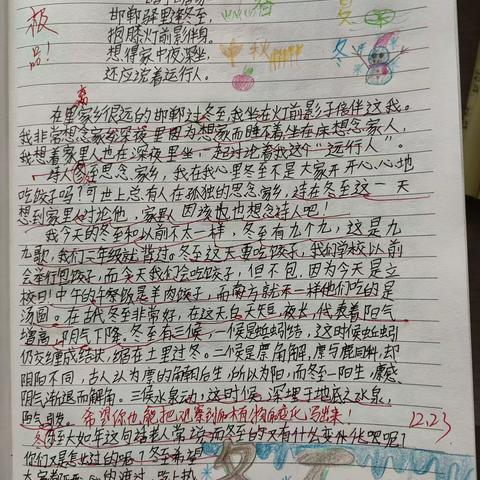 极品!
邯郸驿里逢冬至,
抱膝灯前影伴身。
想得家中夜深坐,
还应说着远行人。
春
夏
中秋
冬
离
在里家乡很远的邯郸过冬至,我坐在灯前影子陪伴这我。
我非常想念家给深夜里因为想家而睡不着坐在床想念家人,
我想着家里人也在深夜里坐一起讨论着我这个“远行人”。
诗人冬至思念家乡,我在我心里冬至不是大家开开心心地
吃饺子吗?可世上总有人在孤独的思念家乡,诗在冬至这一天
想到家里人讨论他,家里人因该也也想念诗人吧!
我今天的冬至和以前不太一样,冬至有九个九,这是九
九歌,我们二年级就背过。冬至这天要吃饺子,我们学校以前
会举行包饺子,而今天我们会吃饺子,但不包,因为今天是立
校日!中午的午餐饭是羊肉饺子,而南方就不一样他们吃的是
汤圆。在古代冬至非常好,在这天白天短,夜长,代表着阳气
增高,阴气下降。冬至有三候,一候是蚯蚓结,这时候蚯蚓
仍交缠成结状,缩在土里过冬。二候是麋角解,麋与鹿同科,却
阴阳不同,古人认为麋的角朝后生,所以为阴,而冬至一阳生,麋感
阴气渐退而解角。三候水泉动,这时候,深埋于地底之水泉,
阳气引发。希望你也能把观察到的植物的变化写出来!
12.23
冬至大如年这句话老人常说而冬至的又有什么变化呢呢?
你们又是怎过的呢?冬至希望